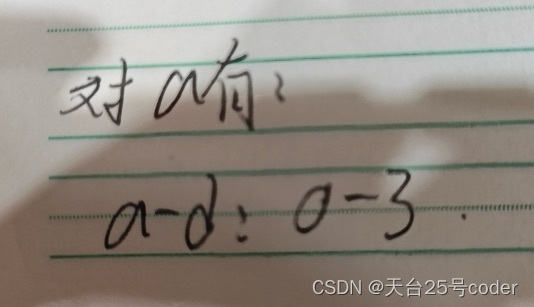 对a有:
a-d: 0-3.
CSDN @天台25号coder